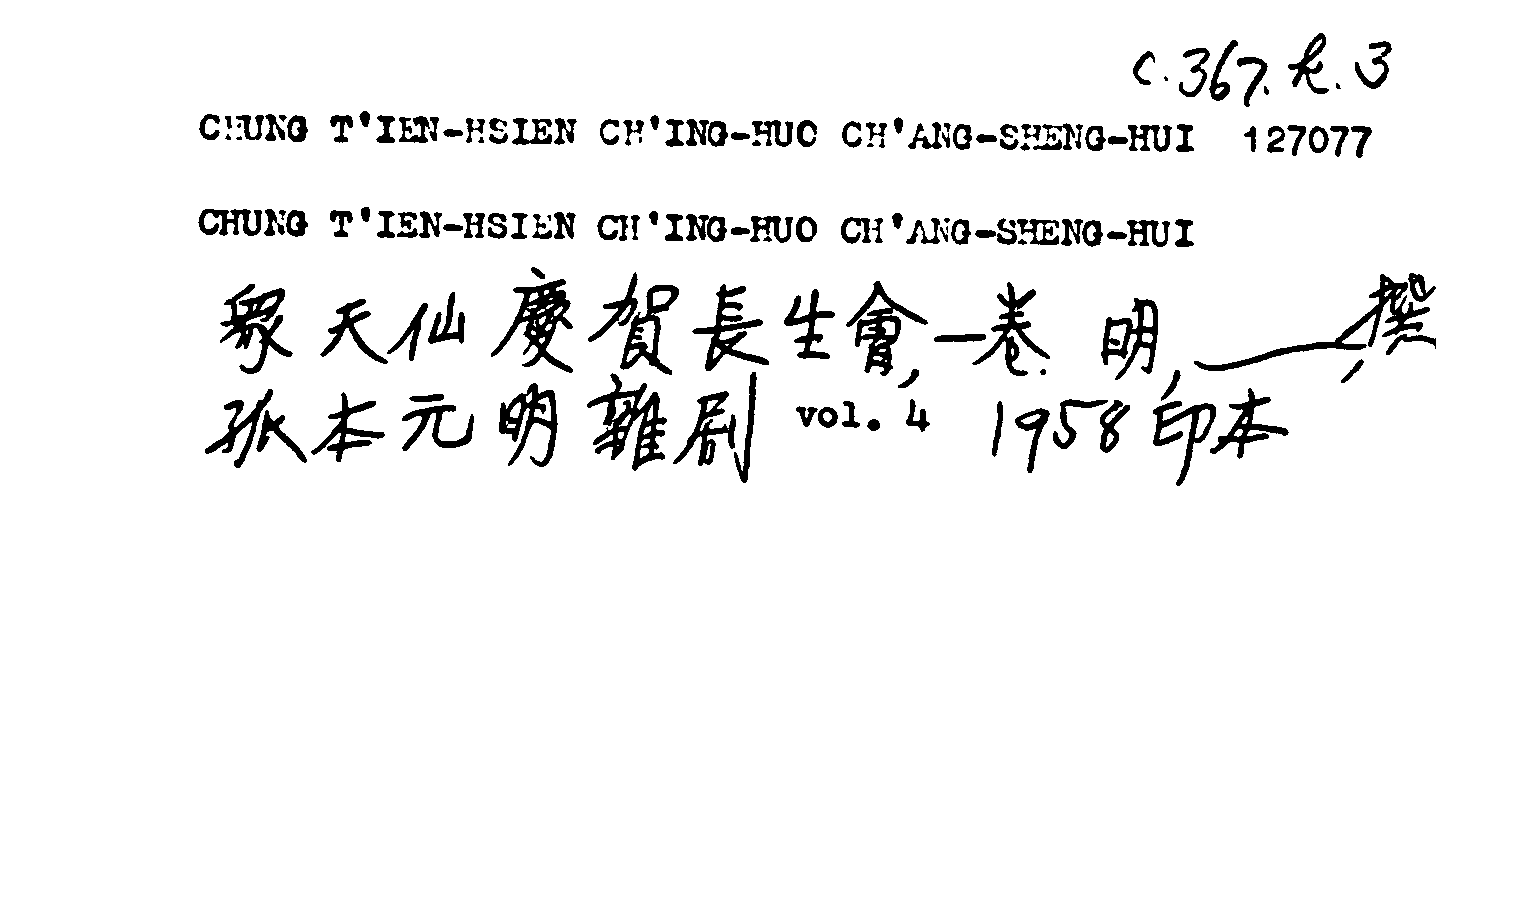 C.367.k.3
CHUNG T'IEN-HSIEN CH'ING-HUO CH'ANG-SHENG-HUI 127077
CHUNG T'IEN-HSIEN CH'ING-HUO CH'ANG-SHENG-HUI
眾天仙慶賀長生會, 一卷. 明, ——撰,
孤本元明雜劇 vol. 4 1958印本